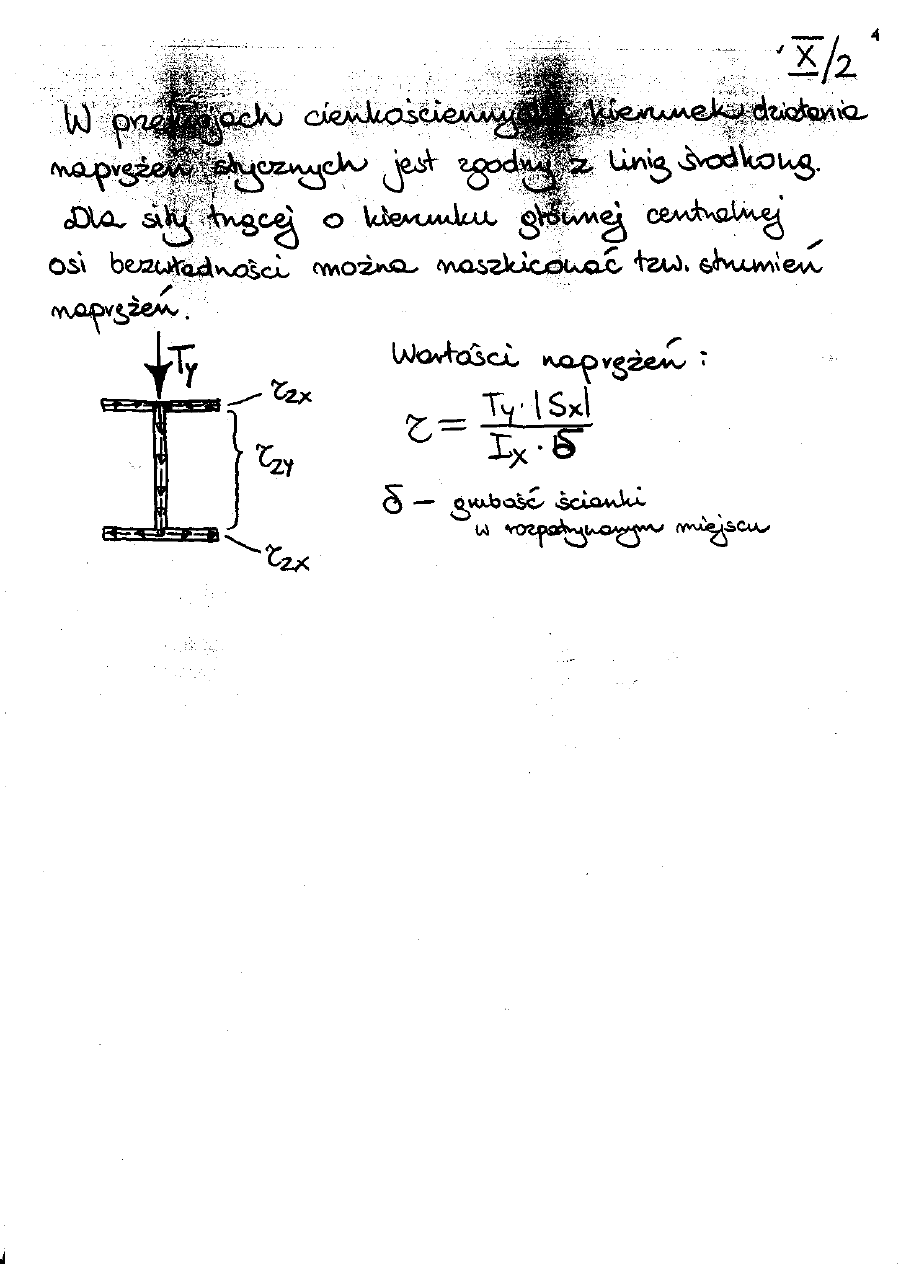 X/2
4
W przekrojach cienkościennych kierunek działania
naprężeń stycznych jest zgodny z linią środkową.
Dla siły tnącej o kierunku głównej centralnej
osi bezwładności można naszkicować tzw. strumień
naprężeń.
Ty
τzx
τzy
τzx
Wartości naprężeń:
τ = Ty · |Sx| / Ix · δ
δ – grubość ścianki
w rozpatrywanym miejscu